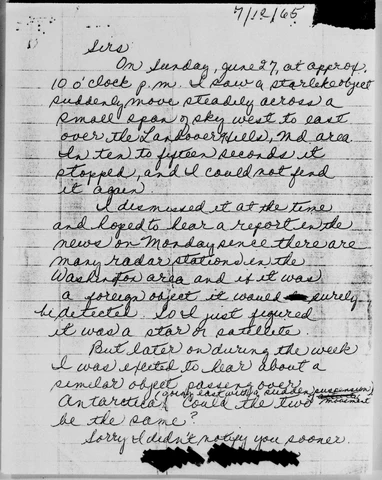 7/12/65
Sirs
On Sunday, June 27, at approx.
10 o'clock p.m. I saw a starlike object
suddenly move steadily across a
small span of sky west to east
over the Landover Hills, Md. area.
In ten to fifteen seconds it
stopped, and I could not find
it again.
I dismissed it at the time
and hoped to hear a report in the
news on Monday since there are
many radar stations in the
Washington area and if it was
a foreign object it would surely
be detected. So I just figured
it was a star or satellite.
But later on during the week
I was excited to hear about a
similar object passing over
Antarctica (going east with a sudden suspension of movement)
Could the two
be the same?
Sorry I didn't notify you sooner.